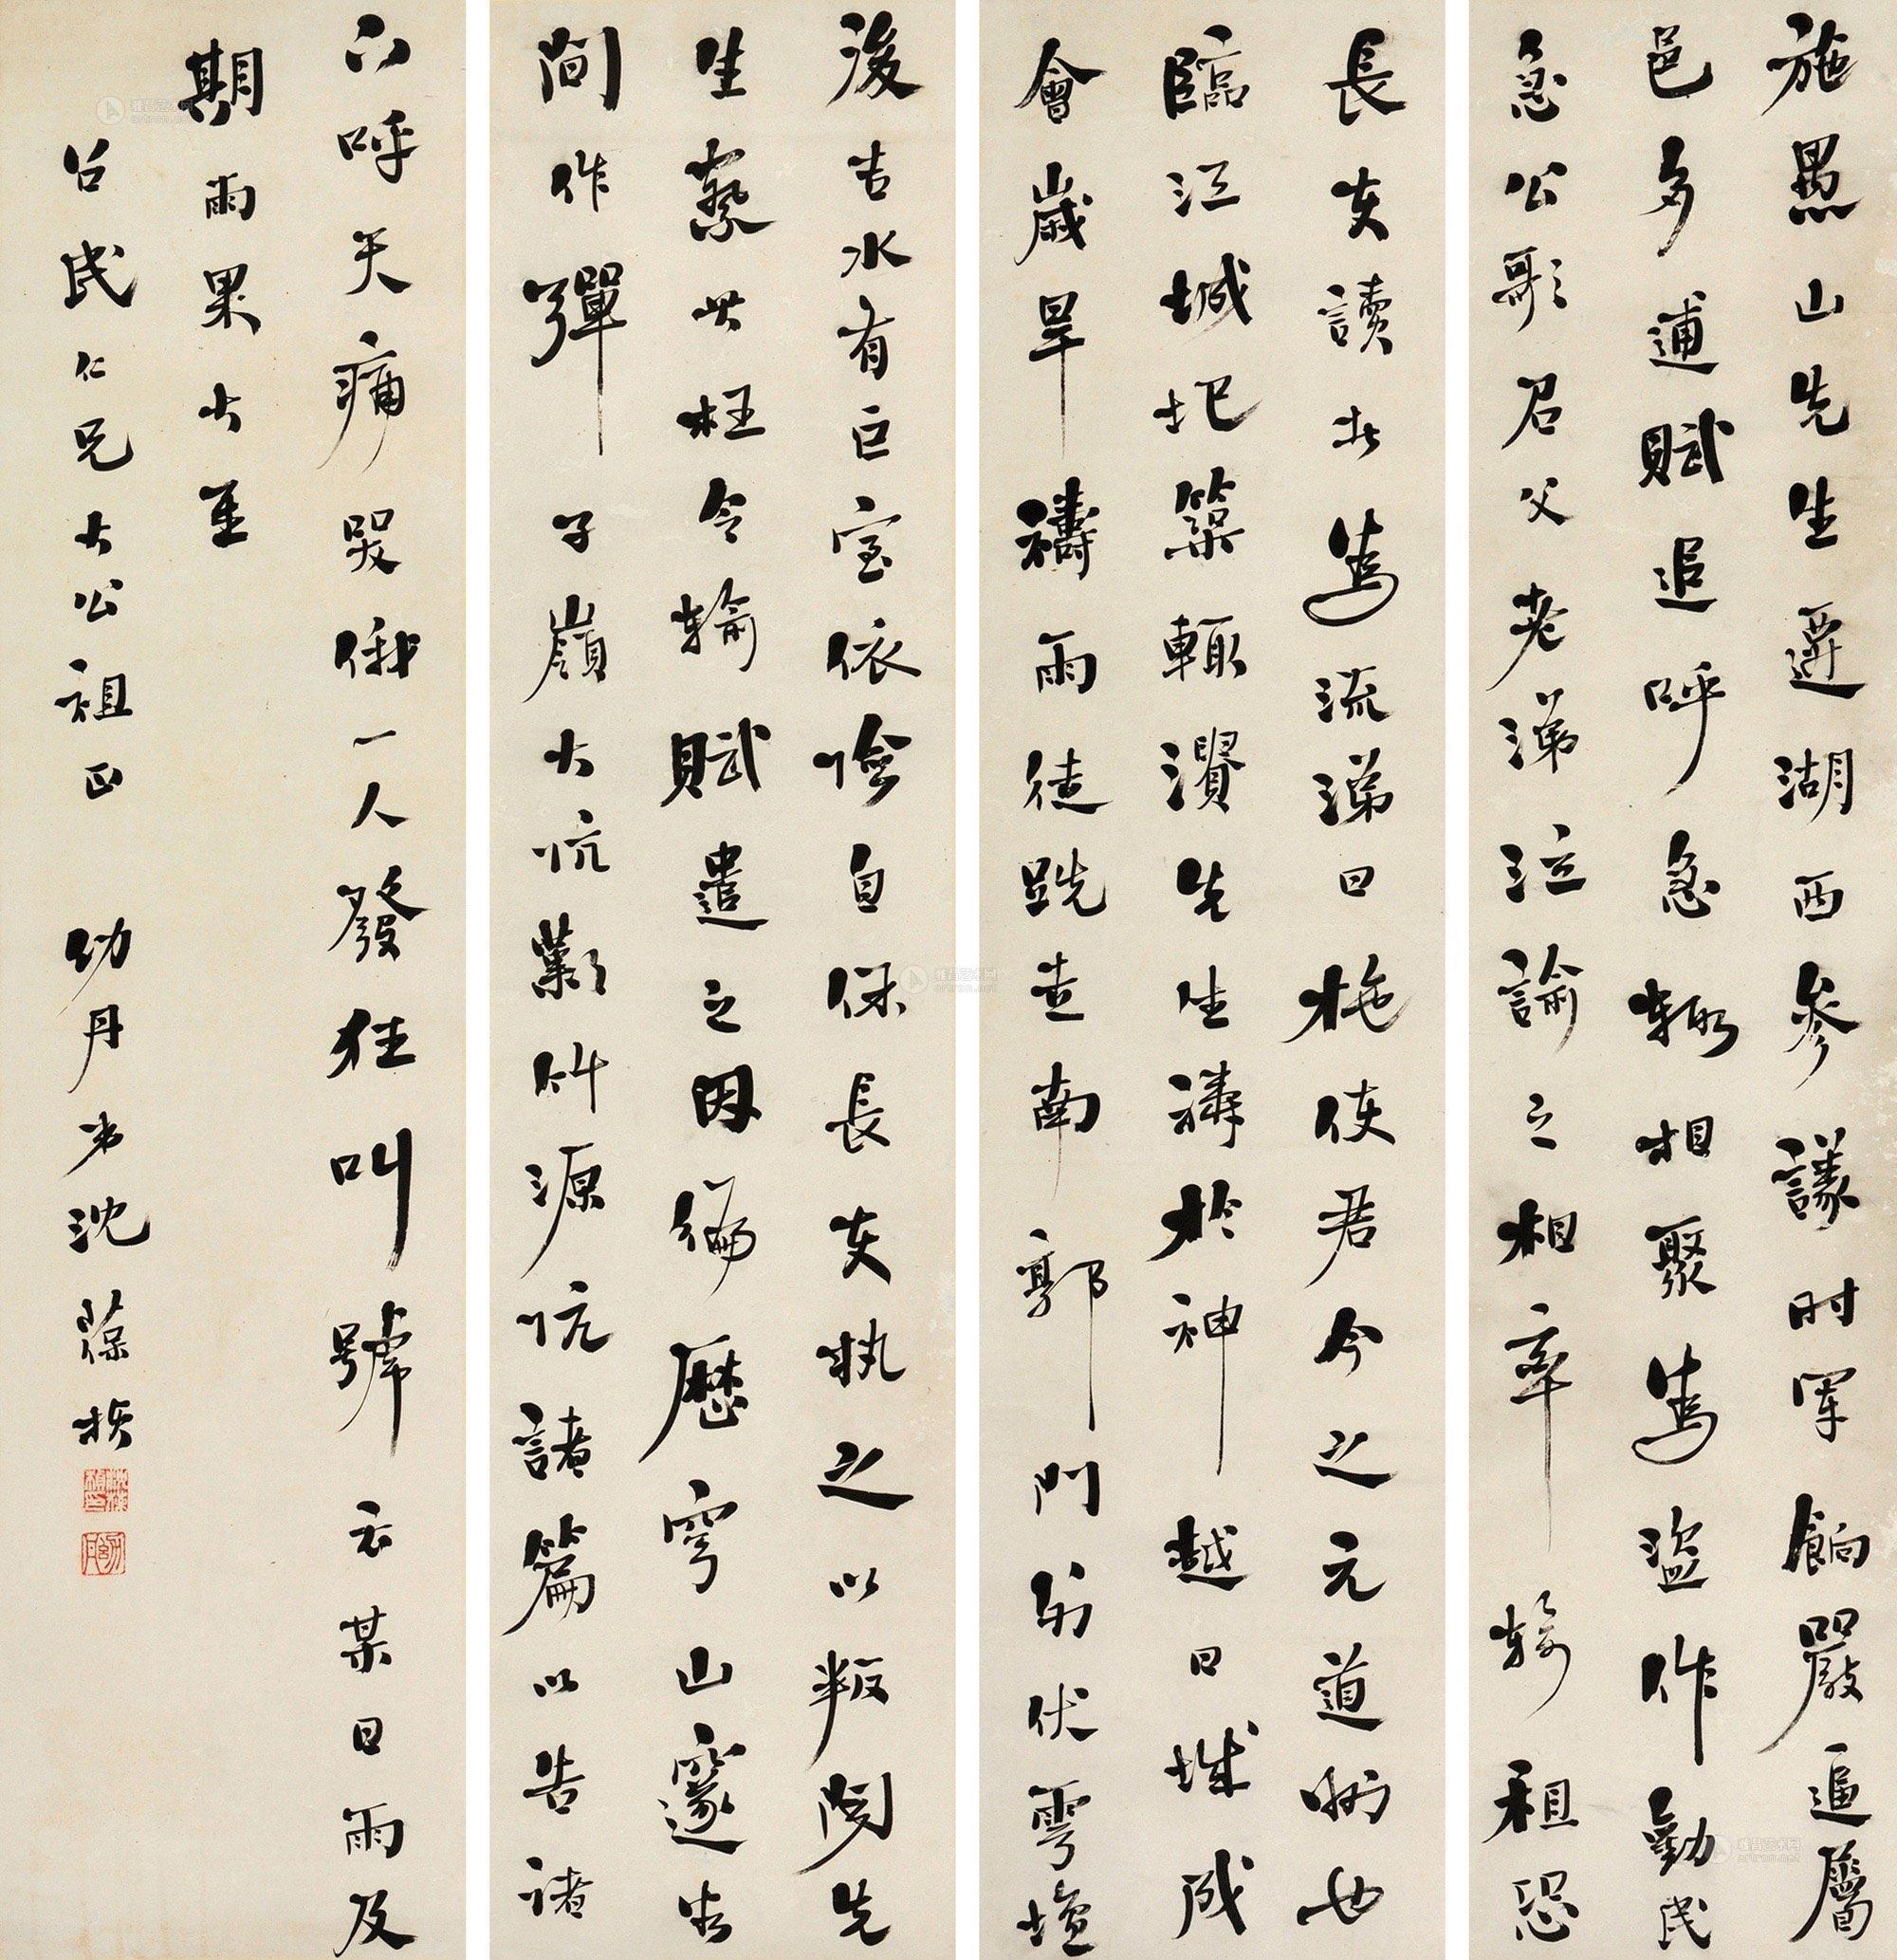 施愚山先生遷湖西參議时军餉嚴逼屬
邑多逋賦追呼急輒相聚为盗作勸民
急公歌召父老涕泣諭之相率輸租恐
長吏讀此为流涕曰施使君今之元道州也
臨江城圯築輒潰先生禱於神越日城成
會歲旱禱雨徒跣走南郭門外伏雩壇
後吉水有巨室依險自保長吏执之以叛聞先
生察其枉令輸賦遣之因徧歷穹山邃谷
间作彈子嶺大坑歎竹源坑諸篇以告諸
下呼天痛哭俄一人發狂叫號云某日雨及
期雨果大至
召民仁兄大公祖正 幼丹弟沈葆楨
雅昌艺术网
artron.net